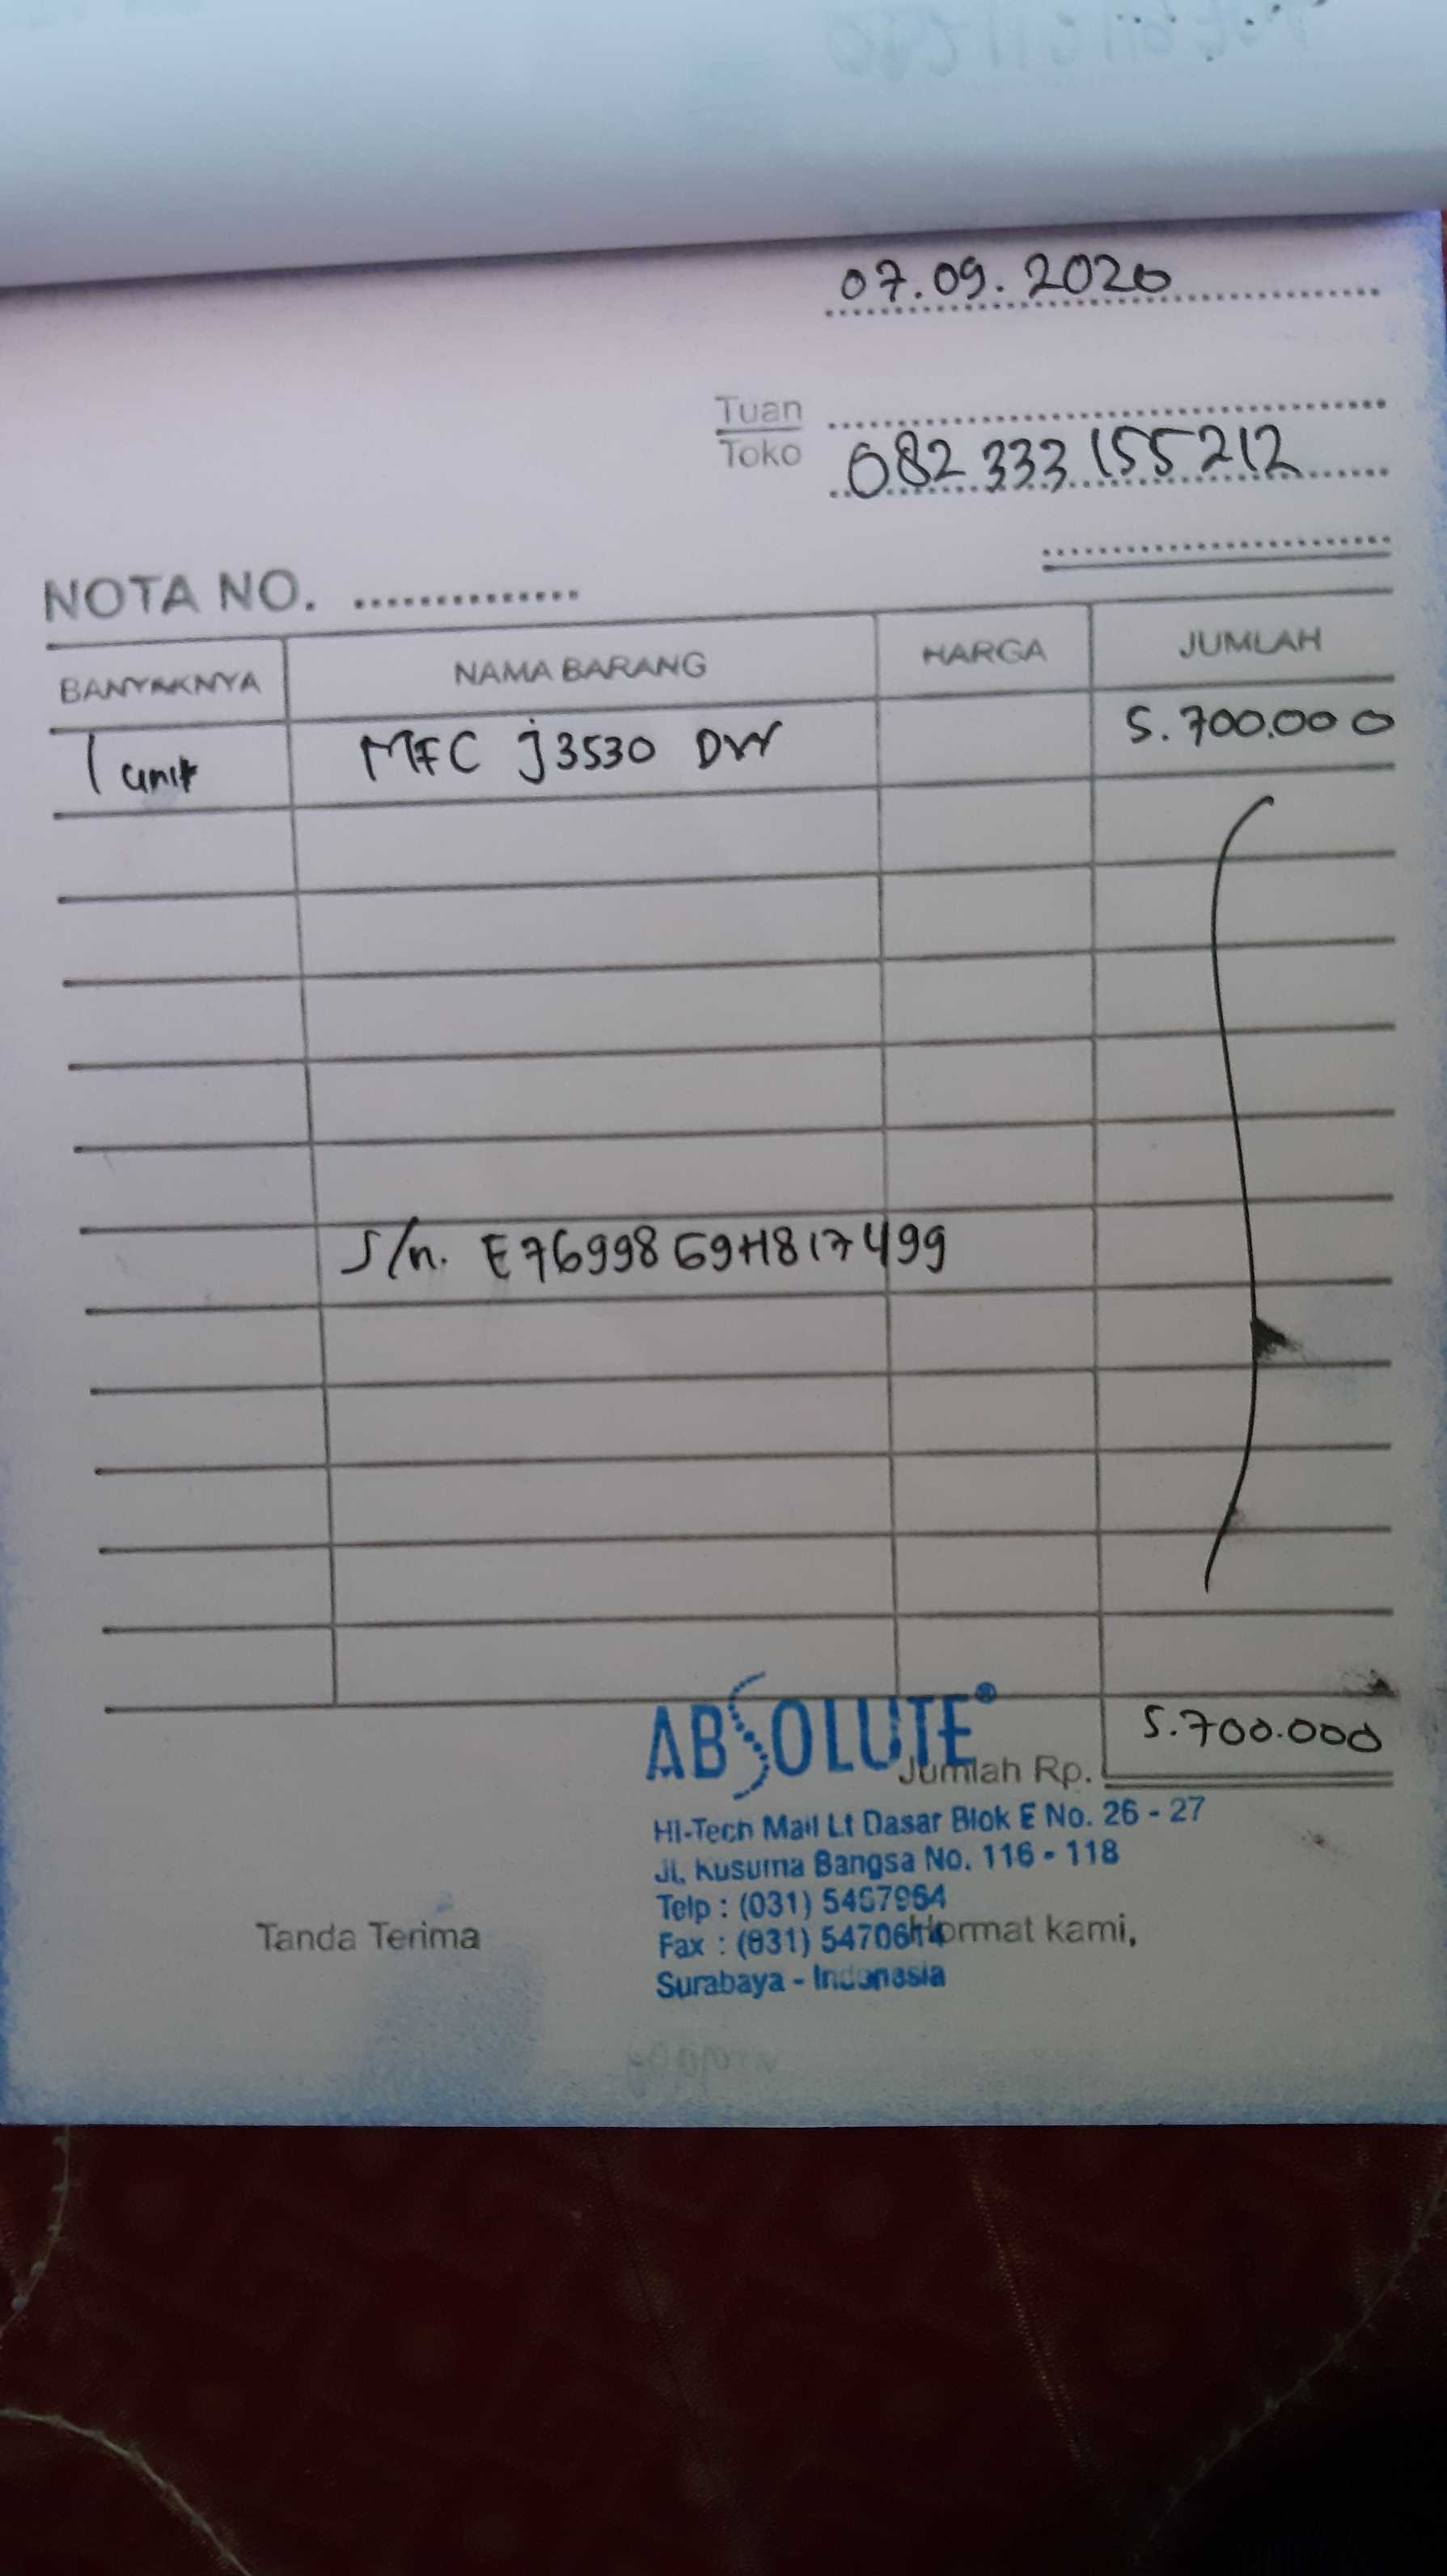 07.09.2020
Tuan
Toko 082 333 155212
NOTA NO.
BANYAKNYA NAMA BARANG HARGA JUMLAH
1 unit MFC j3530 DW 5.700.000
S/n. E76998G9H817499
ABSOLUTE®
Jumlah Rp. 5.700.000
Hi-Tech Mall Lt Dasar Blok E No. 26 - 27
Jl. Kusuma Bangsa No. 116 - 118
Telp : (031) 5467964
Tanda Terima
Fax : (031) 5470614
Hormat kami,
Surabaya - Indonesia